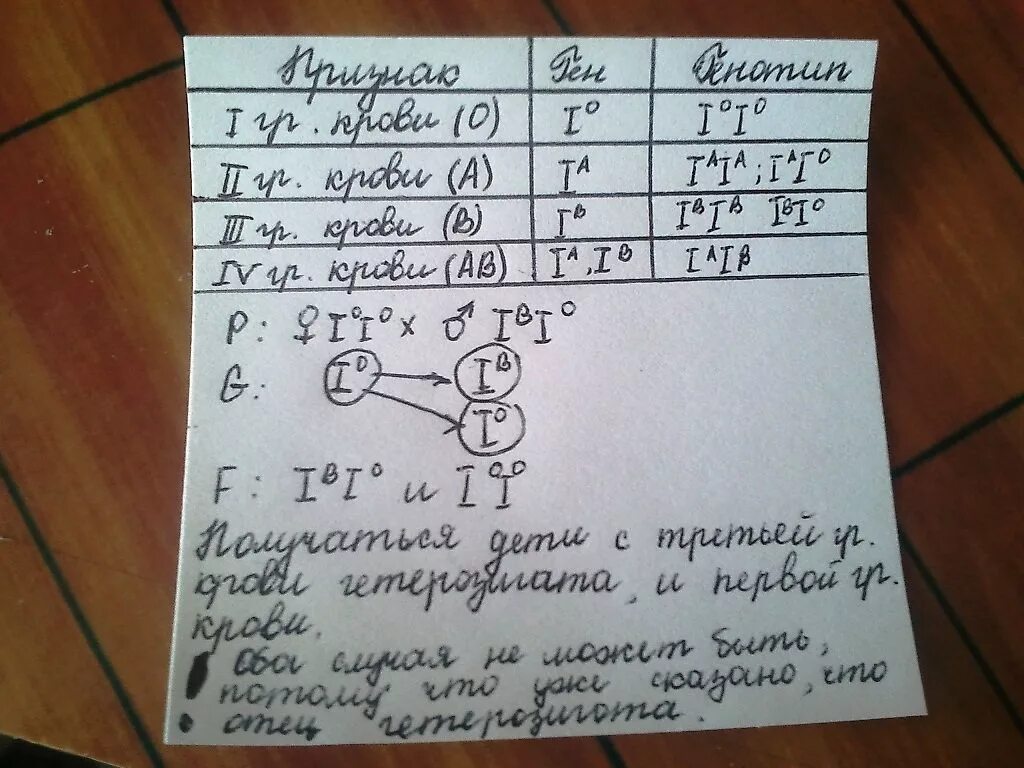 Признак Ген Генотип
I гр. крови (O) Iᴼ IᴼIᴼ
II гр. крови (A) Iᴬ IᴬIᴬ; IᴬIᴼ
III гр. крови (B) Iᴮ IᴮIᴮ IᴮIᴼ
IV гр. крови (AB) Iᴬ, Iᴮ IᴬIᴮ
P: ♀ IᴼIᴼ x ♂ IᴮIᴼ
G: Iᴼ → Iᴮ
Iᴼ
F: IᴮIᴼ и IᴼIᴼ
Получаться дети с третьей гр.
крови гетерозигата, и первой гр.
крови.
! Оба случая не может быть,
потому что уже сказано, что
отец гетерозигота.